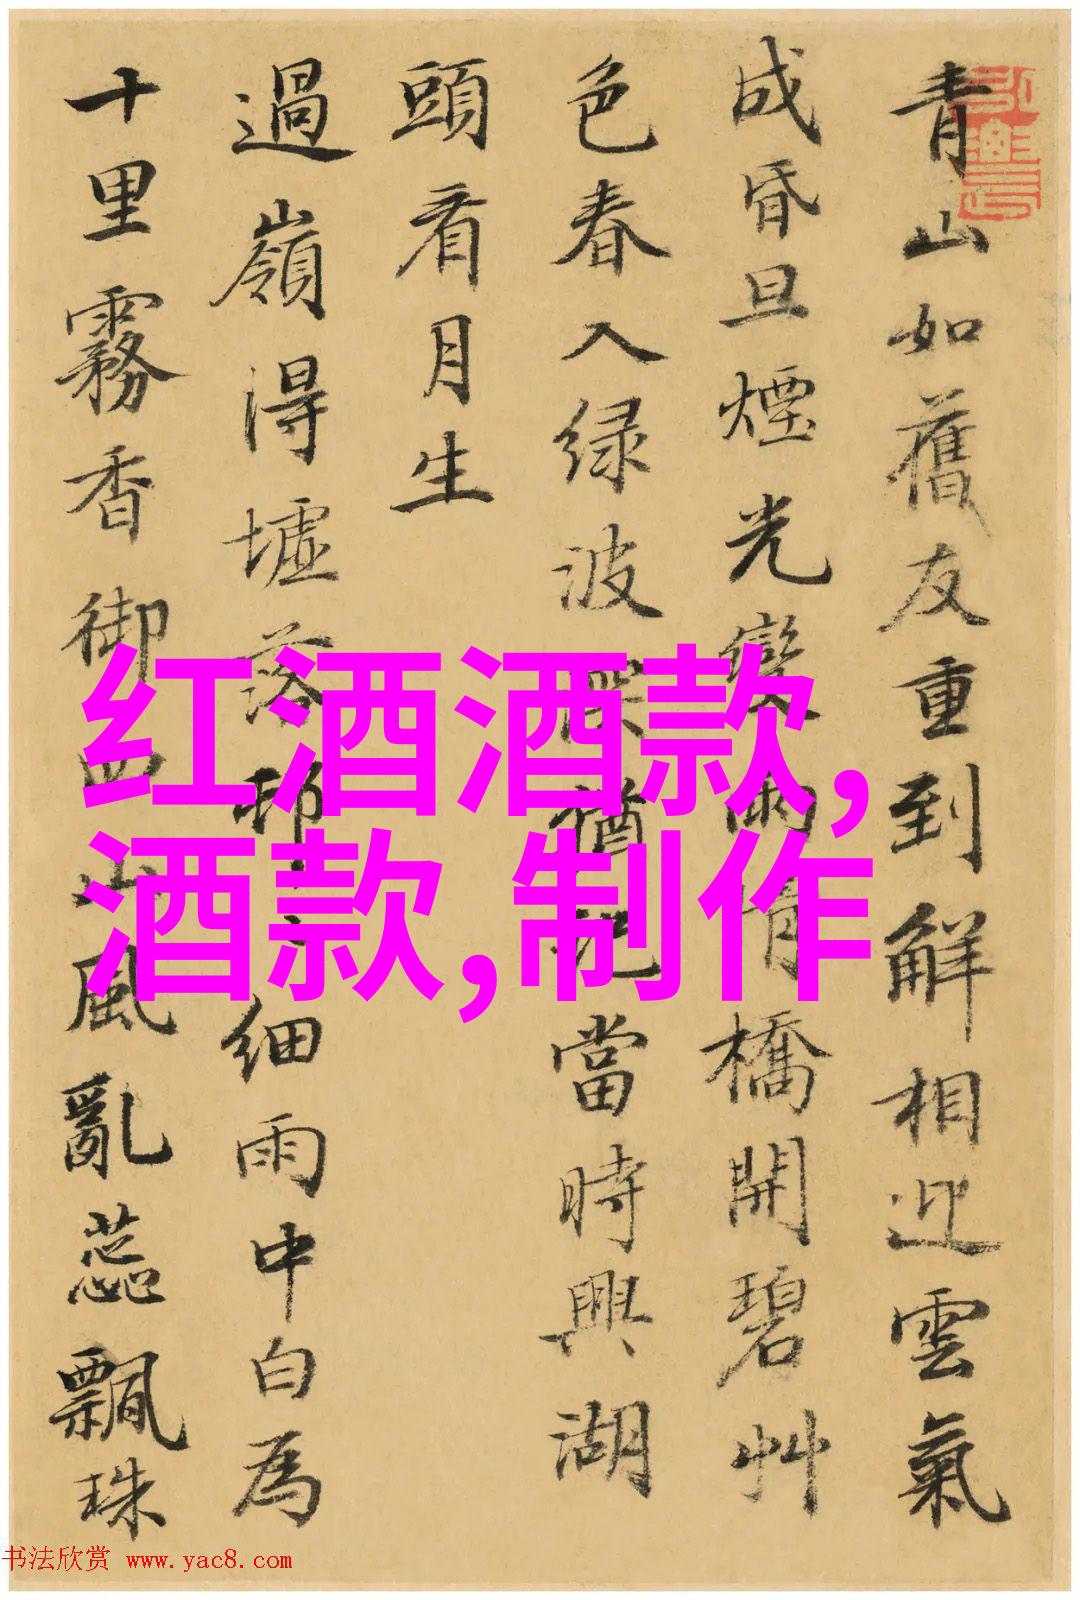 青山如舊友重到解相迎雲氣
成昏旦煙光變雨晴橋開碧艸
色春入绿波深猶記當時興湖
頭看月生
過嶺得墟落細雨中白為
十里霧香御四山風亂蕊飄珠
红酒酒款,
酒款,制作
书法欣赏 www.yac8.com